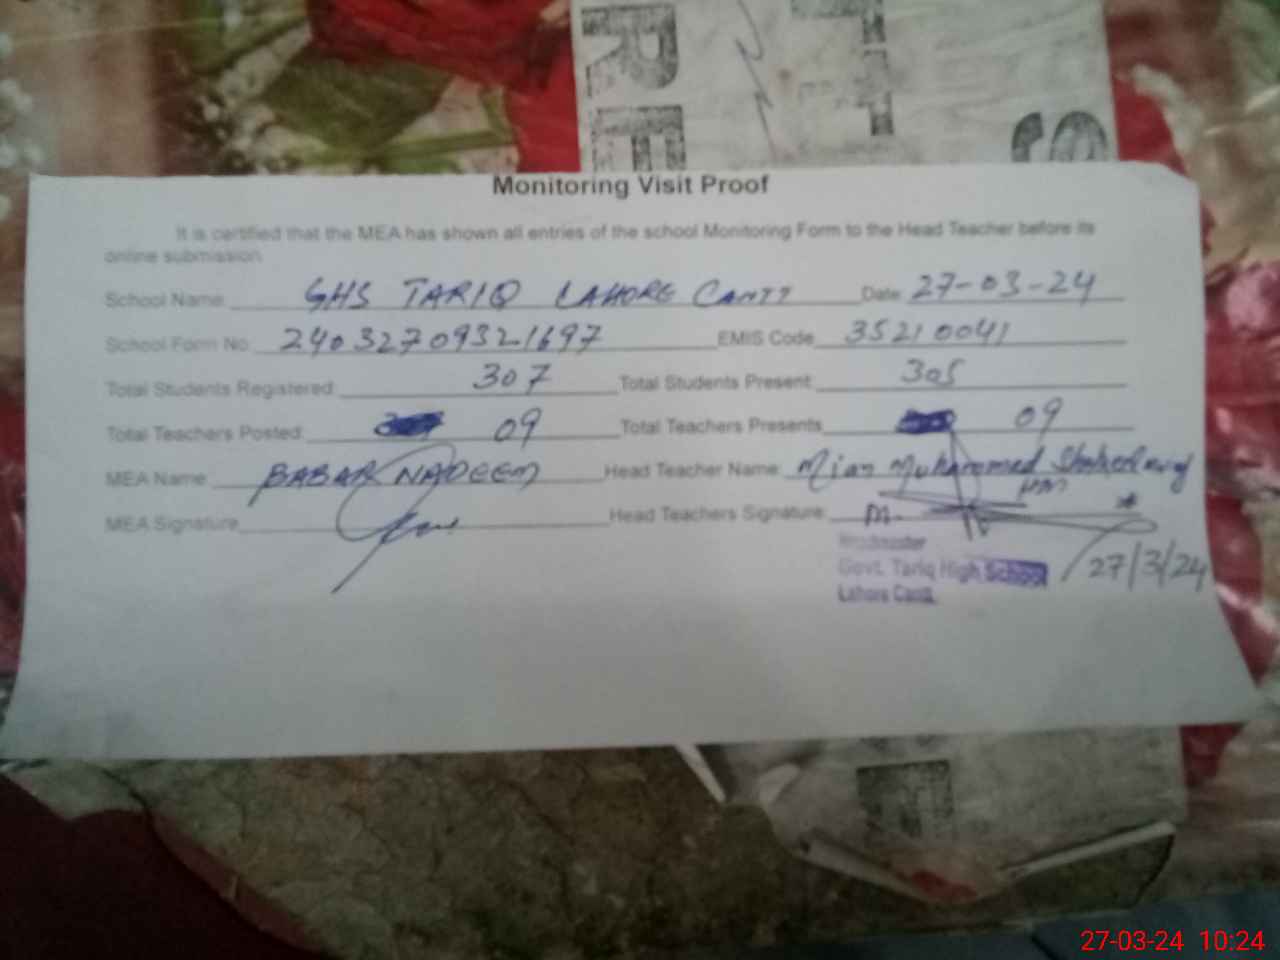 Monitoring Visit Proof
It is certified that the MEA has shown all entries of the school Monitoring Form to the Head Teacher before its
online submission.
School Name: GHS TARIQ LAHORE CANTT Date: 27-03-24
School Form No: 2403270932 1697 EMIS Code 35210041
Total Students Registered: 307 Total Students Present: 305
Total Teachers Posted: 09 Total Teachers Presents 09
MEA Name: BABAR NADEEM Head Teacher Name: Mian Muhammed
MEA Signature Head Teachers Signature:
Headmaster
Govt. Tariq High School
Lahore Cantt.
27/3/24
27-03-24 10:24